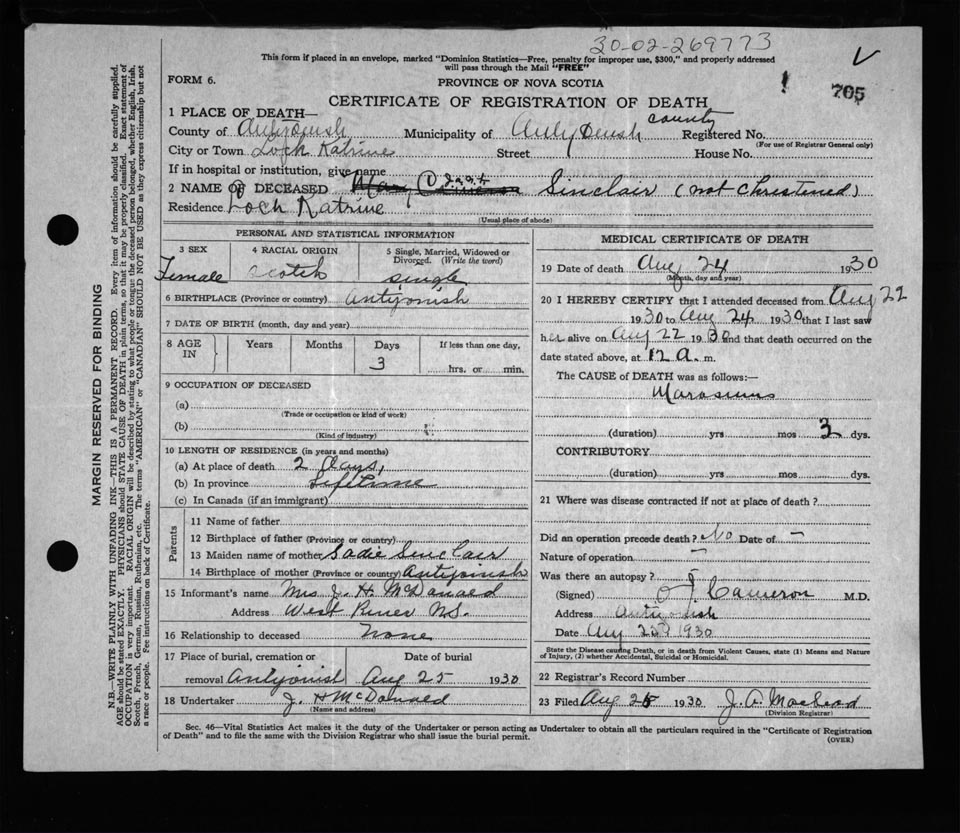 30-02-269773
This form if placed in an envelope, marked "Dominion Statistics—Free, penalty for improper use, $300," and properly addressed
will pass through the Mail "FREE"
FORM 6.
PROVINCE OF NOVA SCOTIA
705
CERTIFICATE OF REGISTRATION OF DEATH
1 PLACE OF DEATH—
County of Antigonish Municipality of Antigonish county Registered No.
(For use of Registrar General only)
City or Town Loch Katrine Street House No.
If in hospital or institution, give name
2 NAME OF DECEASED Sinclair (not Christened)
Residence Loch Katrine
(Usual place of abode)
PERSONAL AND STATISTICAL INFORMATION
3 SEX Female
4 RACIAL ORIGIN Scotch
5 Single, Married, Widowed or Divorced. (Write the word) single
6 BIRTHPLACE (Province or country) Antigonish
7 DATE OF BIRTH (month, day and year)
8 AGE IN Years Months Days 3 If less than one day, hrs. or min.
9 OCCUPATION OF DECEASED
(a)
(Trade or occupation or kind of work)
(b)
(Kind of industry)
10 LENGTH OF RESIDENCE (in years and months)
(a) At place of death 2 days,
(b) In province Lifetime
(c) In Canada (if an immigrant)
Parents
11 Name of father
12 Birthplace of father (Province or country)
13 Maiden name of mother Sadie Sinclair
14 Birthplace of mother (Province or country) Antigonish
15 Informant's name Mrs J. H. McDonald
Address West River N.S.
16 Relationship to deceased None
17 Place of burial, cremation or removal Antigonish Date of burial Aug 25 1930
18 Undertaker J. H McDonald
(Name and address)
MEDICAL CERTIFICATE OF DEATH
19 Date of death Aug 24 1930
(Month, day and year)
20 I HEREBY CERTIFY that I attended deceased from Aug 22
1930 to Aug 24 1930 that I last saw
her alive on Aug 22 1930 and that death occurred on the
date stated above, at 12 a. m.
The CAUSE of DEATH was as follows:—
Marasmus
(duration) yrs mos 3 dys.
CONTRIBUTORY
(duration) yrs mos dys.
21 Where was disease contracted if not at place of death?
Did an operation precede death? No Date of —
Nature of operation —
Was there an autopsy?
(Signed) Cameron M.D.
Address Antigonish
Date Aug 25 1930
State the Disease causing Death, or in death from Violent Causes, state (1) Means and Nature
of Injury, (2) whether Accidental, Suicidal or Homicidal.
22 Registrar's Record Number
23 Filed Aug 25 1930 J. A. MacLeod
(Division Registrar)
Sec. 46—Vital Statistics Act makes it the duty of the Undertaker or person acting as Undertaker to obtain all the particulars required in the "Certificate of Registration
of Death" and to file the same with the Division Registrar who shall issue the burial permit.
(OVER)
MARGIN RESERVED FOR BINDING
N.B.—WRITE PLAINLY WITH UNFADING INK—THIS IS A PERMANENT RECORD. Every item of information should be carefully supplied.
AGE should be stated EXACTLY. PHYSICIANS should STATE CAUSE OF DEATH in plain terms, so that it may be properly classified. Exact statement of
OCCUPATION is very important. RACIAL ORIGIN will be described by stating to what people or tongue the deceased person belonged, whether English, Irish,
Scotch, French, German, Russian, Ruthenian, etc. The terms "AMERICAN" or "CANADIAN" SHOULD NOT BE USED as they express citizenship but not
a race or people. See instructions on back of Certificate.